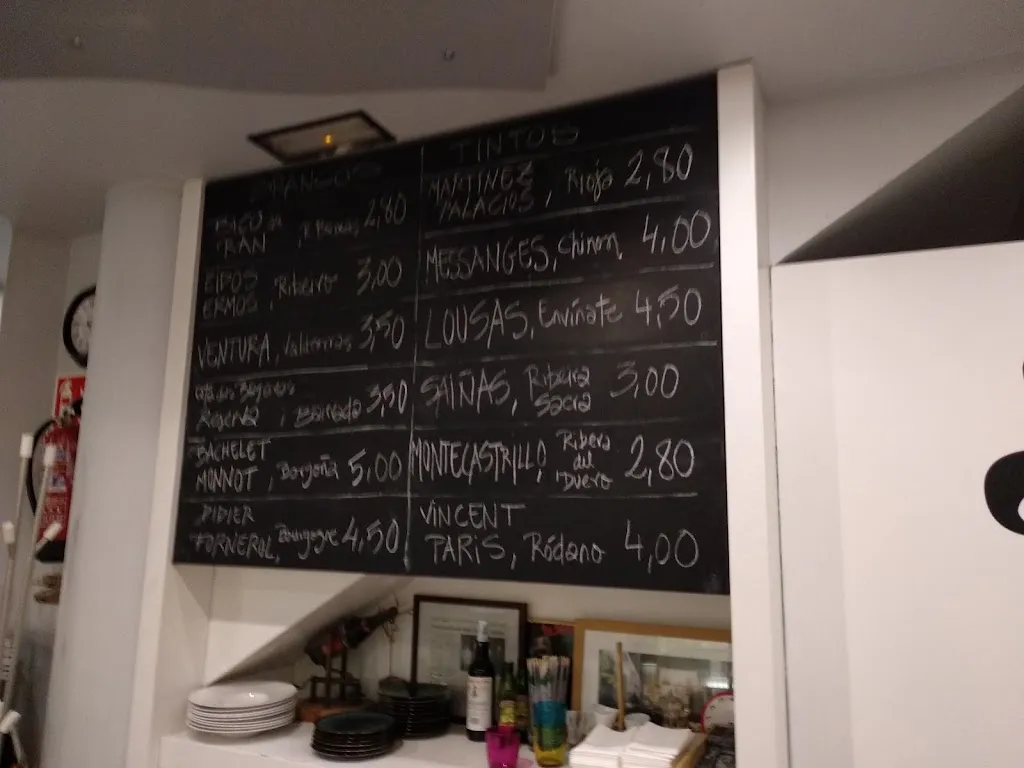 BLANCOS
2,80
EIDOS
ERMOS, Ribeiro 3,00
VENTURA, Valdeorras 3,50
Bágoas
3,50
BACHELET
MONNOT, Borgoña 5,00
DIDIER
FORNEROL, Bourgogne 4,50
TINTOS
MARTINEZ
PALACIOS, Rioja 2,80
MESSANGES, Chinon 4,00
LOUSAS, Envínate 4,50
SAIÑAS, Ribeira
Sacra 3,00
MONTECASTRILLO, Ribera
del
Duero 2,80
VINCENT
PARIS, Ródano 4,00